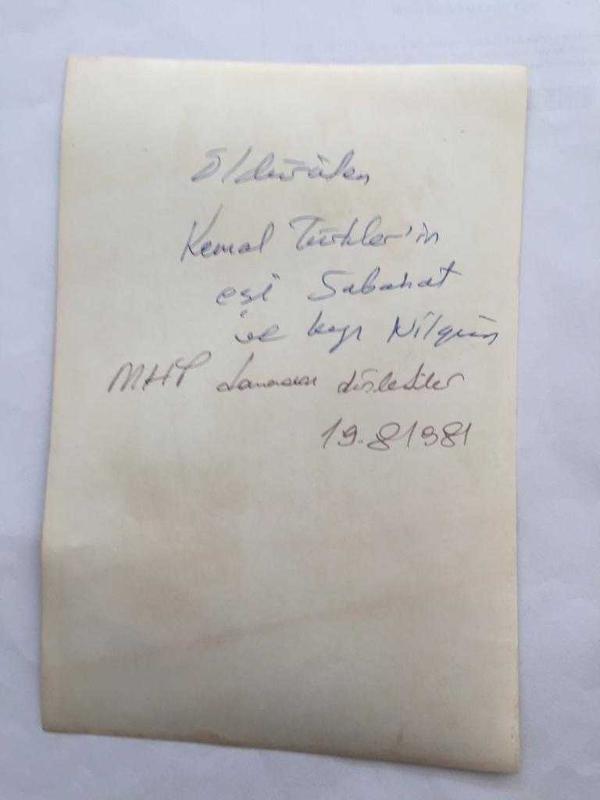 Öldürülen
Kemal Türkler'in
eşi Sabahat
ve kızı Nilgün
MHP davasını dinlediler
19.8.1981